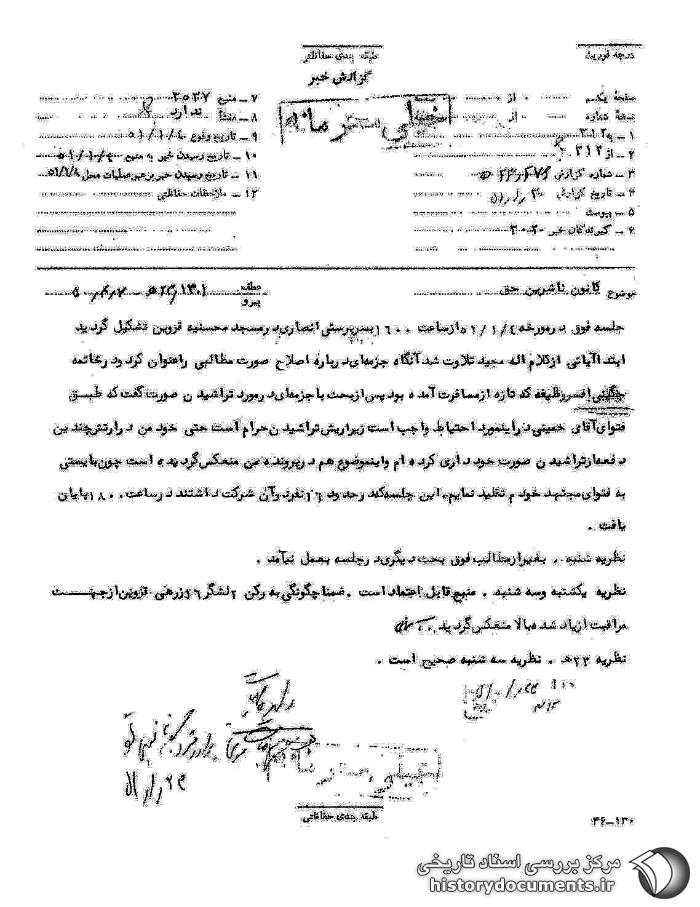 درجه فوریت
طبقه بندی حفاظتی
گزارش خبر
خیلی محرمانه
صفحه یکم از
صفحه شماره از
۱ ـ به ۳۰۲
۲ ـ از ۳۱۲
۳ ـ شماره گزارش
۴ ـ تاریخ گزارش
۵ ـ پیوست
۶ ـ گیرندگان خبر ۳۰۲۰
۷ ـ منبع ۲۵۳۷
۸ ـ منشأ ندارد
۹ ـ تاریخ وقوع ۵۱/۱/۴
۱۰ ـ تاریخ رسیدن خبر به منبع ۵۱/۱/۴
۱۱ ـ تاریخ رسیدن خبر برهبر عملیات محل ۵۱/۱/۸
۱۲ ـ ملاحظات حفاظتی
موضوع کانون ناشرین حق
عطف
پیرو
جلسه فوق درمورخه ۵۱/۱/۴ ازساعت ۱۶۰۰ بسرپرستی انصاری درمسجد محسنیه قزوین تشکیل گردید
ابتدا آیاتی ازکلام اله مجید تلاوت شد آنگاه جزمه‌ای درباره اصلاح صورت مطالبی راعنوان کرد ودرخاتمه
چگینی افسروظیفه که تازه ازمسافرت آمده بود پس ازبحث با جزمه‌ای درمورد تراشیدن صورت گفت که طبق
فتوای آقای خمینی دراینمورد احتیاط واجب است زیراریش تراشیدن حرام است حتی خود من درارتش چندین
دفعه ازتراشیدن صورت خودداری کرده ام واینموضوع هم درپرونده من منعکس گردیده است چون بایستی
به فتوای مجتهد خودم تقلید نمایم. این جلسه که درحدود ۱۶ نفردرآن شرکت داشتند درساعت ۱۸۰۰ پایان
یافت .
نظریه شنبه . بغیرازمطالب فوق بحث دیگری درجلسه بعمل نیامد .
نظریه یکشنبه وسه شنبه . منبع قابل اعتماد است . ضمنا چگونگی به رکن ۲ لشگر ۱۶ زرهی قزوین ازجهت
مراقبت ازیاد شده بالا منعکس گردید .
نظریه ۲۳ هـ . نظریه سه شنبه صحیح است .
خیلی محرمانه
طبقه بندی حفاظتی
۳۶-۱۳۰
مرکز بررسی اسناد تاریخی
historydocuments.ir